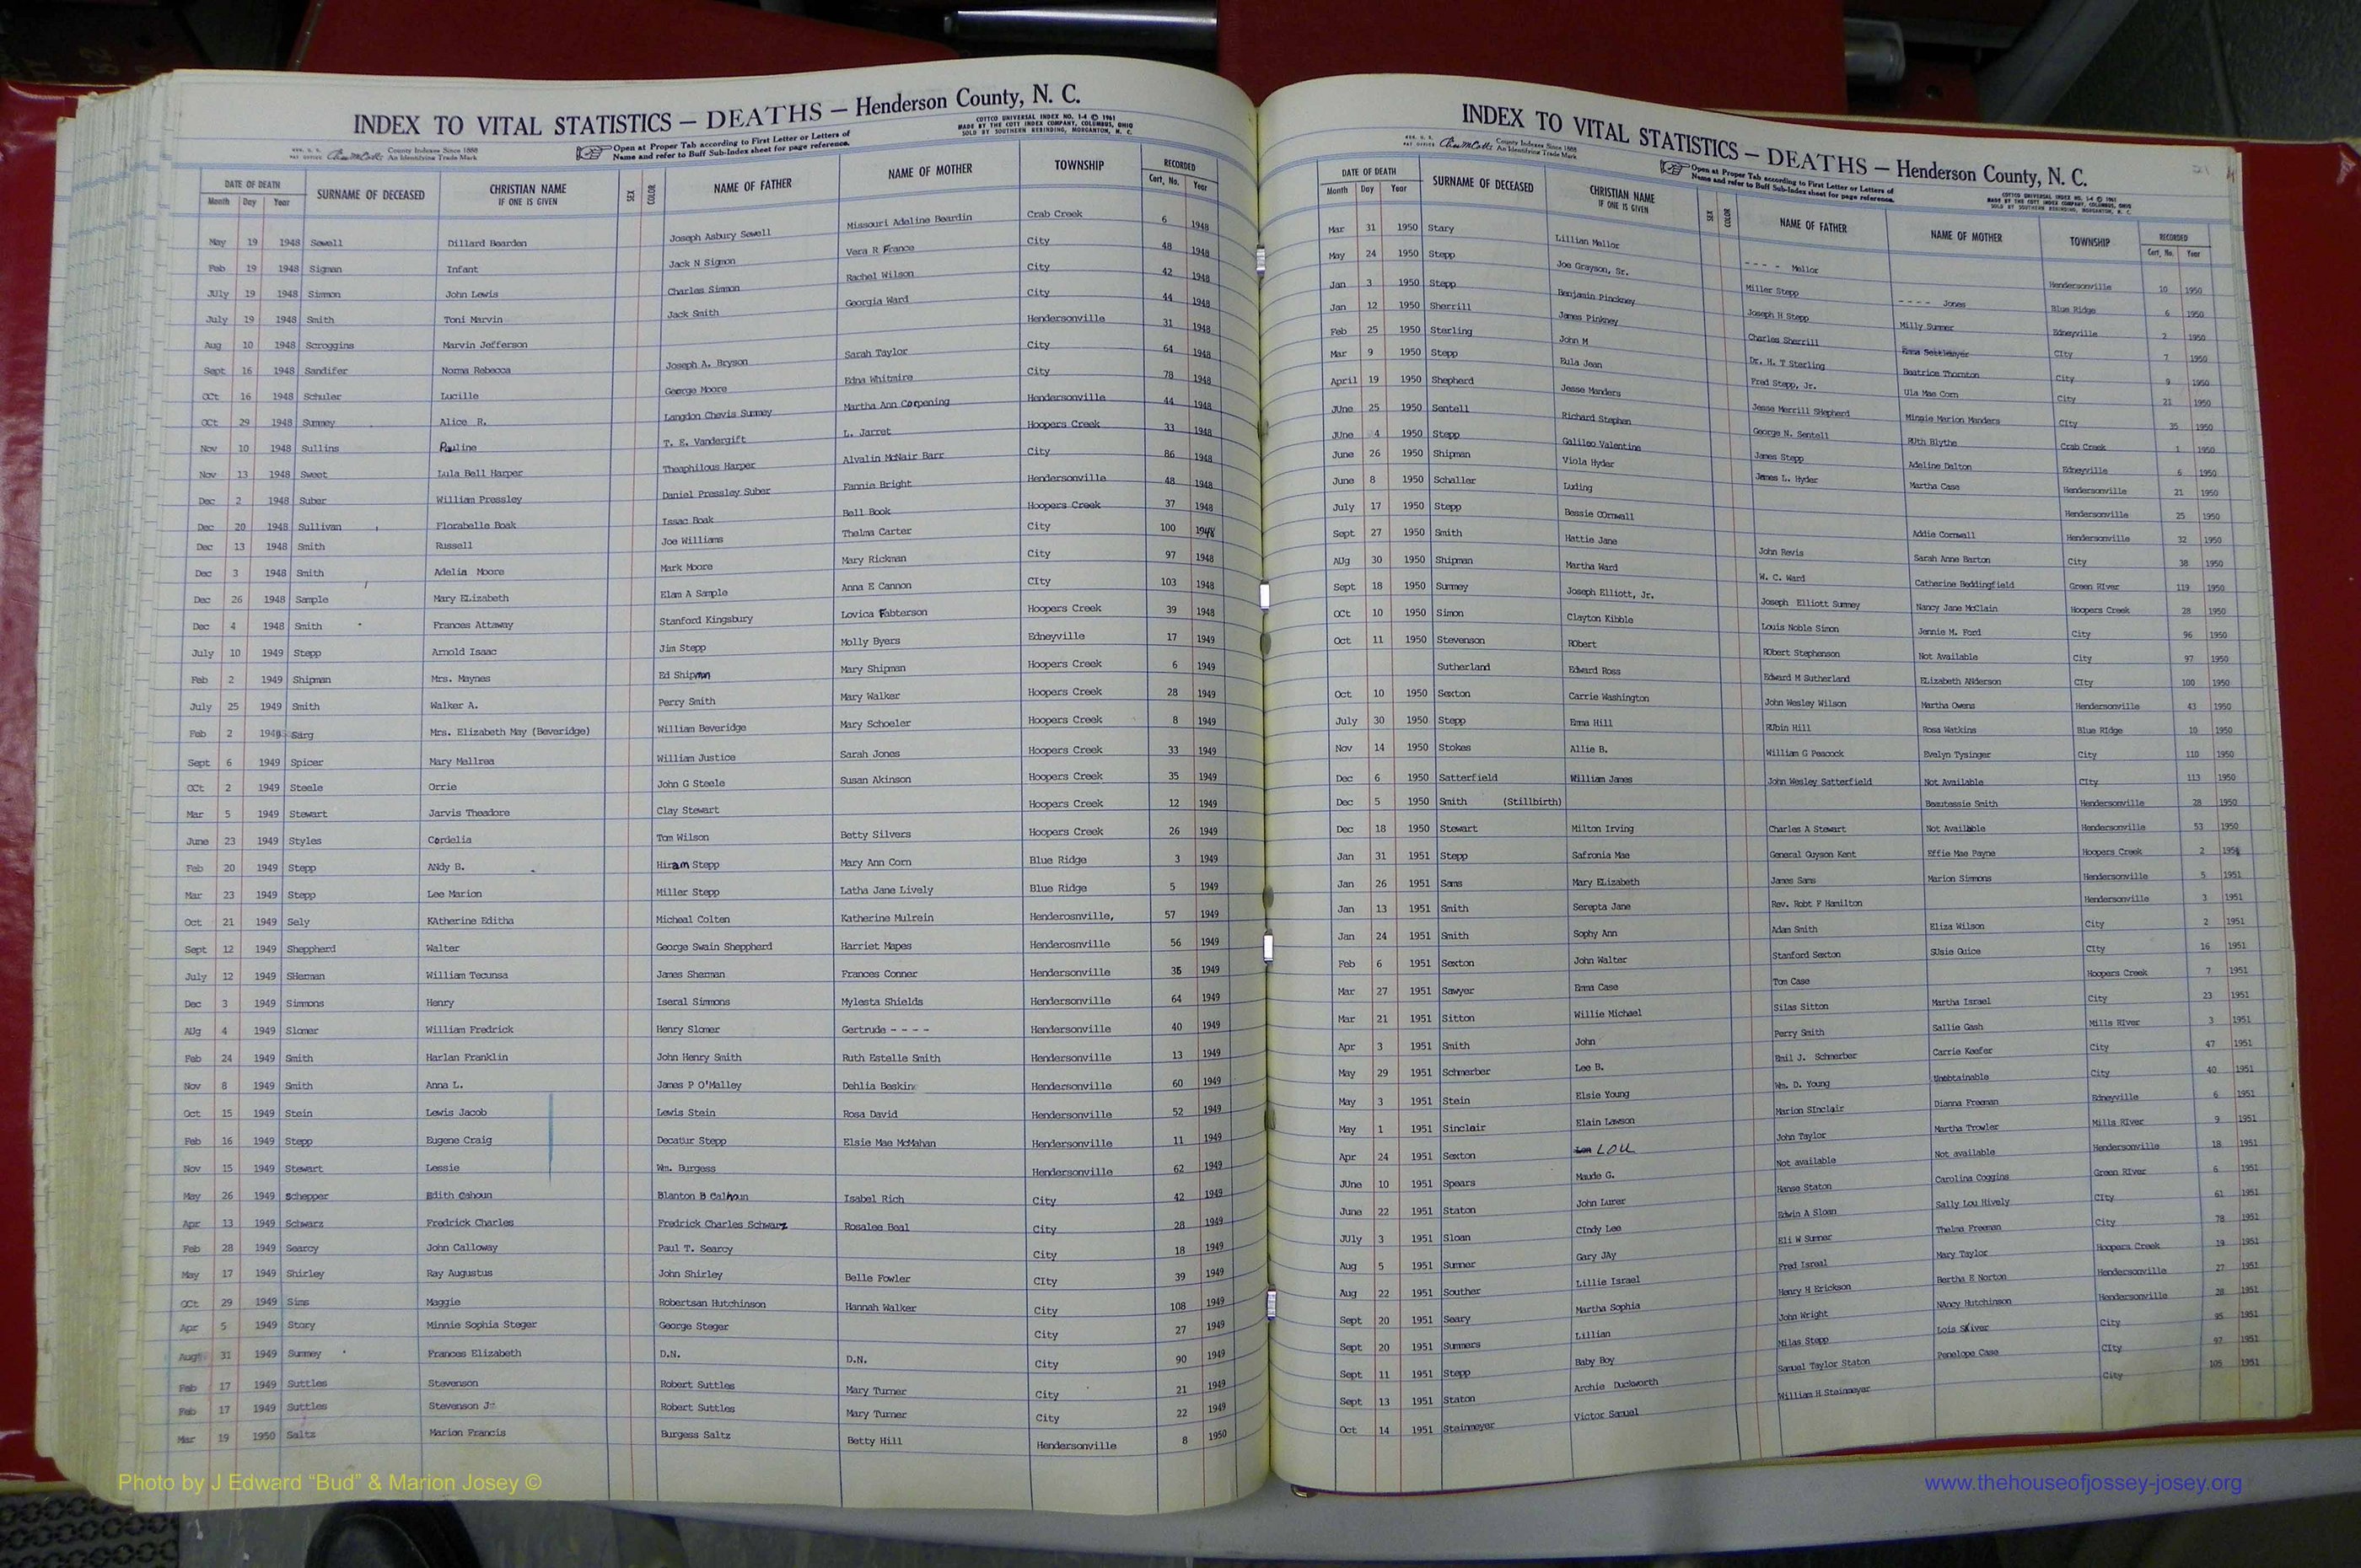 INDEX TO VITAL STATISTICS — DEATHS — Henderson County, N. C.
County Indexes Since 1888
An Identifying Trade Mark
Open at Proper Tab according to First Letter or Letters of
Name and refer to Buff Sub-Index sheet for page reference.
COTTCO UNIVERSAL INDEX NO. 1-4 © 1961
MADE BY THE COTT INDEX COMPANY, COLUMBUS, OHIO
SOLD BY SOUTHERN REBINDING, MORGANTON, N. C.
DATE OF DEATH SURNAME OF DECEASED CHRISTIAN NAME IF ONE IS GIVEN SEX COLOR NAME OF FATHER NAME OF MOTHER TOWNSHIP RECORDED
Month Day Year Cert. No. Year
May 19 1948 Sewell Dillard Bearden Joseph Asbury Sewell Missouri Adeline Beardin Crab Creek 6 1948
Feb 19 1948 Sigman Infant Jack N Sigmon Vera R France City 48 1948
JUly 19 1948 Simmon John Lewis Charles Simmon Rachel Wilson City 42 1948
July 19 1948 Smith Toni Marvin Jack Smith Georgia Ward City 44 1948
Aug 10 1948 Scroggins Marvin Jefferson Hendersonville 31 1948
Sept 16 1948 Sandifer Norma Rebecca Joseph A. Bryson Sarah Taylor City 64 1948
OCt 16 1948 Schuler Lucille George Moore Edna Whitmire City 78 1948
OCt 29 1948 Summey Alice R. Langdon Chevis Summey Martha Ann Corpening Hendersonville 44 1948
Nov 10 1948 Sullins Pauline T. E. Vandergift L. Jarret Hoopers Creek 33 1948
Nov 13 1948 Sweet Lula Bell Harper Theophilous Harper Alvalin McNair Barr City 86 1948
Dec 2 1948 Suber William Pressley Daniel Pressley Suber Fannie Bright Hendersonville 48 1948
Dec 20 1948 Sullivan Florabelle Boak Issac Boak Bell Book Hoopers Creek 37 1948
Dec 13 1948 Smith Russell Joe Williams Thelma Carter City 100 1948
Dec 3 1948 Smith Adelia Moore Mark Moore Mary Rickman City 97 1948
Dec 26 1948 Sample Mary ELizabeth Elam A Sample Anna E Cannon CIty 103 1948
Dec 4 1948 Smith Frances Attaway Stanford Kingsbury Lovica Fabterson Hoopers Creek 39 1948
July 10 1949 Stepp Arnold Isaac Jim Stepp Molly Byers Edneyville 17 1949
Feb 2 1949 Shipman Mrs. Maynes Ed Shipman Mary Shipman Hoopers Creek 6 1949
July 25 1949 Smith Walker A. Perry Smith Mary Walker Hoopers Creek 28 1949
Feb 2 1949 Sarg Mrs. Elizabeth May (Beveridge) William Beveridge Mary Schoeler Hoopers Creek 8 1949
Sept 6 1949 Spicer Mary Mallrea William Justice Sarah Jones Hoopers Creek 33 1949
OCt 2 1949 Steele Orrie John G Steele Susan Akinson Hoopers Creek 35 1949
Mar 5 1949 Stewart Jarvis Theadore Clay Stewart Hoopers Creek 12 1949
June 23 1949 Styles Cordelia Tom Wilson Betty Silvers Hoopers Creek 26 1949
Feb 20 1949 Stepp ANdy B. Hiram Stepp Mary Ann Corn Blue Ridge 3 1949
Mar 23 1949 Stepp Lee Marion Miller Stepp Latha Jane Lively Blue Ridge 5 1949
Oct 21 1949 Sely KAtherine Editha Micheal Colten Katherine Mulrein Henderosnville, 57 1949
Sept 12 1949 Sheppherd Walter George Swain Sheppherd Harriet Mapes Henderosnville 56 1949
July 12 1949 SHerman William Tecunsa James Sherman Frances Conner Hendersonville 36 1949
Dec 3 1949 Simmons Henry Iseral Simmons Mylesta Shields Hendersonville 64 1949
AUg 4 1949 Slomer William Fredrick Henry Slomer Gertrude - - - - Hendersonville 40 1949
Feb 24 1949 Smith Harlan Franklin John Henry Smith Ruth Estelle Smith Hendersonville 13 1949
Nov 8 1949 Smith Anna L. James P O'Malley Dehlia Beskin Hendersonville 60 1949
Oct 15 1949 Stein Lewis Jacob Lewis Stein Rosa David Hendersonville 52 1949
Feb 16 1949 Stepp Eugene Craig Decatur Stepp Elsie Mae McMahan Hendersonville 11 1949
Nov 15 1949 Stewart Lessie Wm. Burgess Hendersonville 62 1949
May 26 1949 Schepper Edith Cahoun Blanton B Calhoun Isabel Rich City 42 1949
Apr 13 1949 Schwarz Fredrick Charles Fredrick Charles Schwarz Rosalee Beal City 28 1949
Feb 28 1949 Searcy John Calloway Paul T. Searcy City 18 1949
May 17 1949 Shirley Ray Augustus John Shirley Belle Fowler CIty 39 1949
OCt 29 1949 Sims Maggie Robertsan Hutchinson Hannah Walker City 108 1949
Apr 5 1949 Story Minnie Sophia Steger George Steger City 27 1949
Aug 31 1949 Summey Frances Elizabeth D.N. D.N. City 90 1949
Feb 17 1949 Suttles Stevenson Robert Suttles Mary Turner City 21 1949
Feb 17 1949 Suttles Stevenson Jr Robert Suttles Mary Turner City 22 1949
Mar 19 1950 Saltz Marion Francis Burgess Saltz Betty Hill Hendersonville 8 1950
INDEX TO VITAL STATISTICS — DEATHS — Henderson County, N. C.
County Indexes Since 1888
An Identifying Trade Mark
Open at Proper Tab according to First Letter or Letters of
Name and refer to Buff Sub-Index sheet for page reference.
COTTCO UNIVERSAL INDEX NO. 1-4 © 1961
MADE BY THE COTT INDEX COMPANY, COLUMBUS, OHIO
SOLD BY SOUTHERN REBINDING, MORGANTON, N. C.
DATE OF DEATH SURNAME OF DECEASED CHRISTIAN NAME IF ONE IS GIVEN SEX COLOR NAME OF FATHER NAME OF MOTHER TOWNSHIP RECORDED
Month Day Year Cert. No. Year
Mar 31 1950 Stary Lillian Mellor - - - - Mellor Hendersonville 10 1950
May 24 1950 Stepp Joe Grayson, Sr. Miller Stepp - - - - Jones Blue Ridge 6 1950
Jan 3 1950 Stepp Benjamin Pinckney Joseph H Stepp Milly Sumner Edneyville 2 1950
Jan 12 1950 Sherrill James Pinkney Charles Sherrill Emma Settlemyer CIty 7 1950
Feb 25 1950 Sterling John M Dr. H. T Sterling Beatrice Thornton City 9 1950
Mar 9 1950 Stepp Eula Jean Fred Stepp, Jr. Ula Mae Corn City 21 1950
April 19 1950 Shepherd Jesse Manders Jesse Merrill SHepherd Minnie Marion Manders CIty 35 1950
JUne 25 1950 Sentell Richard Stephen George N. Sentell RUth Blythe Crab Creek 1 1950
JUne 4 1950 Stepp Galileo Valentine James Stepp Adeline Dalton Edneyville 6 1950
June 26 1950 Shipman Viola Hyder James L. Hyder Martha Case Hendersonville 21 1950
June 8 1950 Schaller Luding Hendersonville 25 1950
July 17 1950 Stepp Bessie COrnwall Addie Cornwall Hendersonville 32 1950
Sept 27 1950 Smith Hattie Jane John Revis Sarah Anne Barton City 38 1950
AUg 30 1950 Shipman Martha Ward W. C. Ward Catherine Beddingfield Green RIver 119 1950
Sept 18 1950 Summey Joseph Elliott, Jr. Joseph Elliott Summey Nancy Jane McClain Hoopers Creek 28 1950
OCt 10 1950 Simon Clayton Kibble Louis Noble Simon Jennie M. Ford City 96 1950
Oct 11 1950 Stevenson RObert RObert Stephenson Not Available City 97 1950
Sutherland Edward Ross Edward M Sutherland ELizabeth ANderson CIty 100 1950
Oct 10 1950 Sexton Carrie Washington John Wesley Wilson Martha Owens Hendersonville 43 1950
July 30 1950 Stepp Emma Hill RUbin Hill Rosa Watkins Blue RIdge 10 1950
Nov 14 1950 Stokes Allie B. William G Peacock Evelyn Tysinger City 110 1950
Dec 6 1950 Satterfield William James John Wesley Satterfield Not Available CIty 113 1950
Dec 5 1950 Smith (Stillbirth) Beautessie Smith Hendersonville 28 1950
Dec 18 1950 Stewart Milton Irving Charles A Stewart Not Available Hendersonville 53 1950
Jan 31 1951 Stepp Safronia Mae General Guyson Kent Effie Mae Payne Hoopers Creek 2 1951
Jan 26 1951 Sams Mary ELizabeth James Sams Marion Simmons Hendersonville 5 1951
Jan 13 1951 Smith Serepta Jane Rev. Robt F Hamilton Hendersonville 3 1951
Jan 24 1951 Smith Sophy Ann Adam Smith Eliza Wilson City 2 1951
Feb 6 1951 Sexton John Walter Stanford Sexton SUsie Guice CIty 16 1951
Mar 27 1951 Sawyer Emma Case Tom Case Hoopers Creek 7 1951
Mar 21 1951 Sitton Willie Michael Silas Sitton Martha Israel City 23 1951
Apr 3 1951 Smith John Perry Smith Sallie Gash Mills RIver 3 1951
May 29 1951 Schmerber Lee B. Emil J. Schmerber Carrie Keefer City 47 1951
May 3 1951 Stein Elsie Young Wm. D. Young Unobtainable City 40 1951
May 1 1951 Sinclair Elain Lawson Marion SInclair Dianna Freeman Edneyville 6 1951
Apr 24 1951 Sexton LOU John Taylor Martha Trowler Mills RIver 9 1951
JUne 10 1951 Spears Maude G. Not available Not available Hendersonville 18 1951
June 22 1951 Staton John Lurer Hanse Staton Carolina Coggins Green RIver 6 1951
JUly 3 1951 Sloan CIndy Lee Edwin A Sloan Sally Lou Hively CIty 61 1951
Aug 5 1951 Sumner Gary JAy Eli W Sumner Thelma Freeman City 78 1951
Aug 22 1951 Souther Lillie Israel Fred Isreal Mary Taylor Hoopers Creek 19 1951
Sept 20 1951 Seary Martha Sophia Henry H Erickson Bertha E Norton Hendersonville 27 1951
Sept 20 1951 Summers Lillian John Wright NAncy Hutchinson Hendersonville 28 1951
Sept 11 1951 Stepp Baby Boy Milas Stepp Lois Skiver City 95 1951
Sept 13 1951 Staton Archie Duckworth Samuel Taylor Staton Penelope Case CIty 97 1951
Oct 14 1951 Steinmeyer Victor Samuel William H Steinmeyer City 105 1951
Photo by J Edward “Bud” & Marion Josey ©
www.thehouseofjossey-josey.org